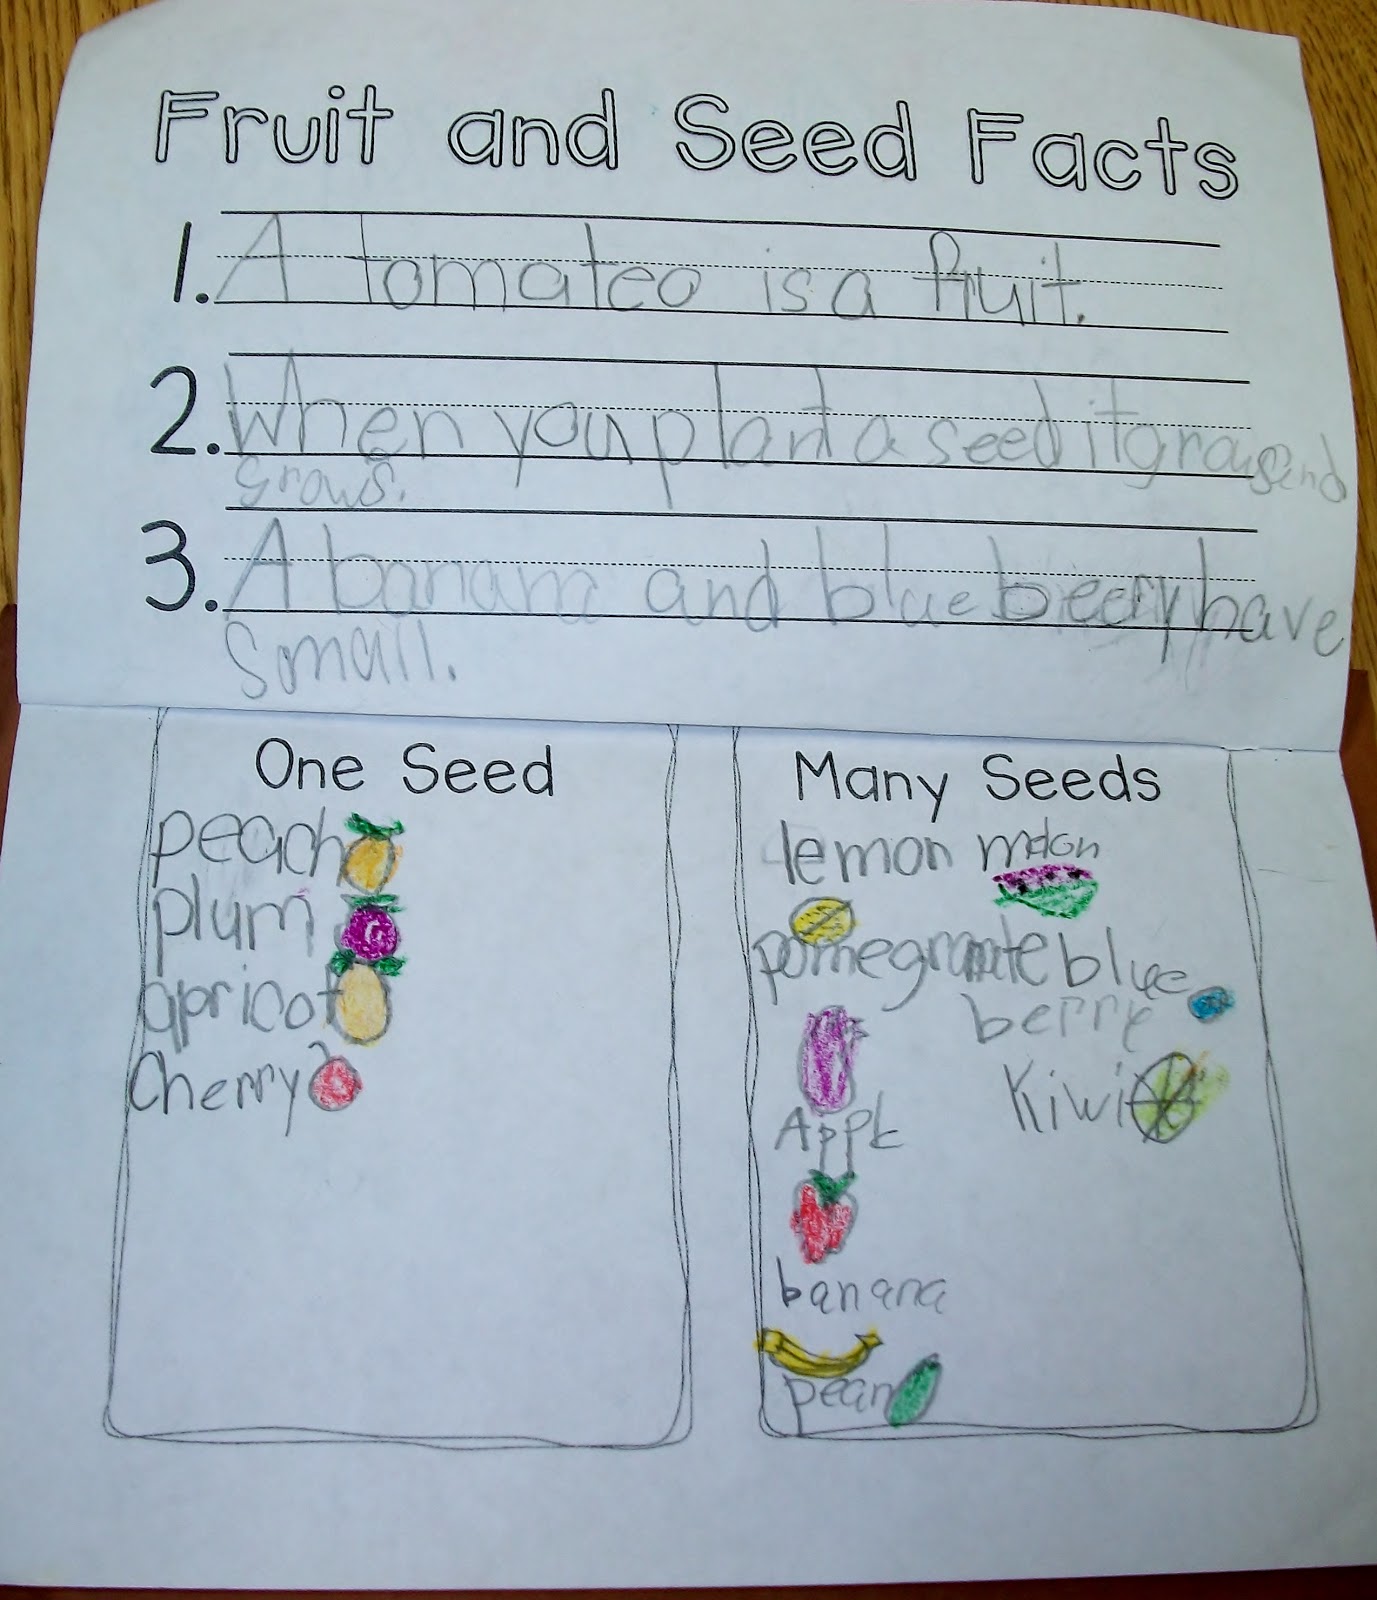 Fruit and Seed Facts
1. A tomateo is a fruit.
2. When you plant a seed it grows and
grows.
3. A banana and blue beery have
small.
One Seed
peach
plum
apricot
Cherry
Many Seeds
lemon melon
pomegranate blue
berry
Kiwi
Apple
banana
pear